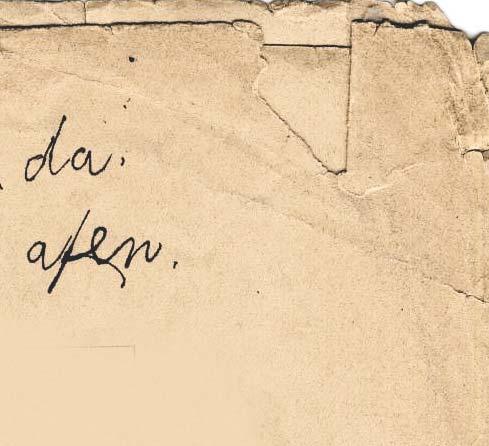 da.
afen.